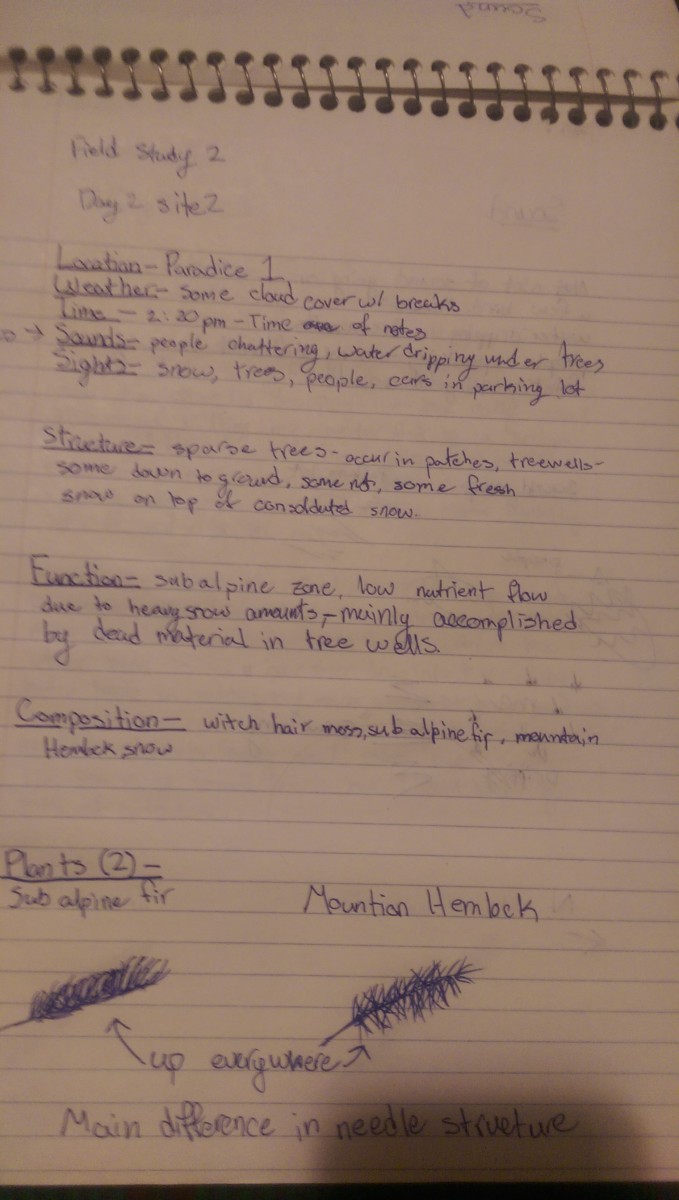 Sound
Field Study 2
Day 2 site 2
Location - Paradice 1
Weather - Some cloud cover w/ breaks
Time - 2:20 pm - Time of notes
→ Sounds - people chattering, water dripping under trees
Sights - snow, trees, people, cars in parking lot
Structure - sparse trees - occur in patches, treewells -
some down to ground, some not, some fresh
snow on top of consolduted snow.
Function - subalpine zone, low nutrient flow
due to heavy snow amounts, - mainly accomplished
by dead material in tree wells.
Composition - witch hair moss, sub alpine fir, mountain
Hemlock, snow
Plants (2) -
Sub alpine fir Mountian Hemlock
up everywhere
Main difference in needle structure